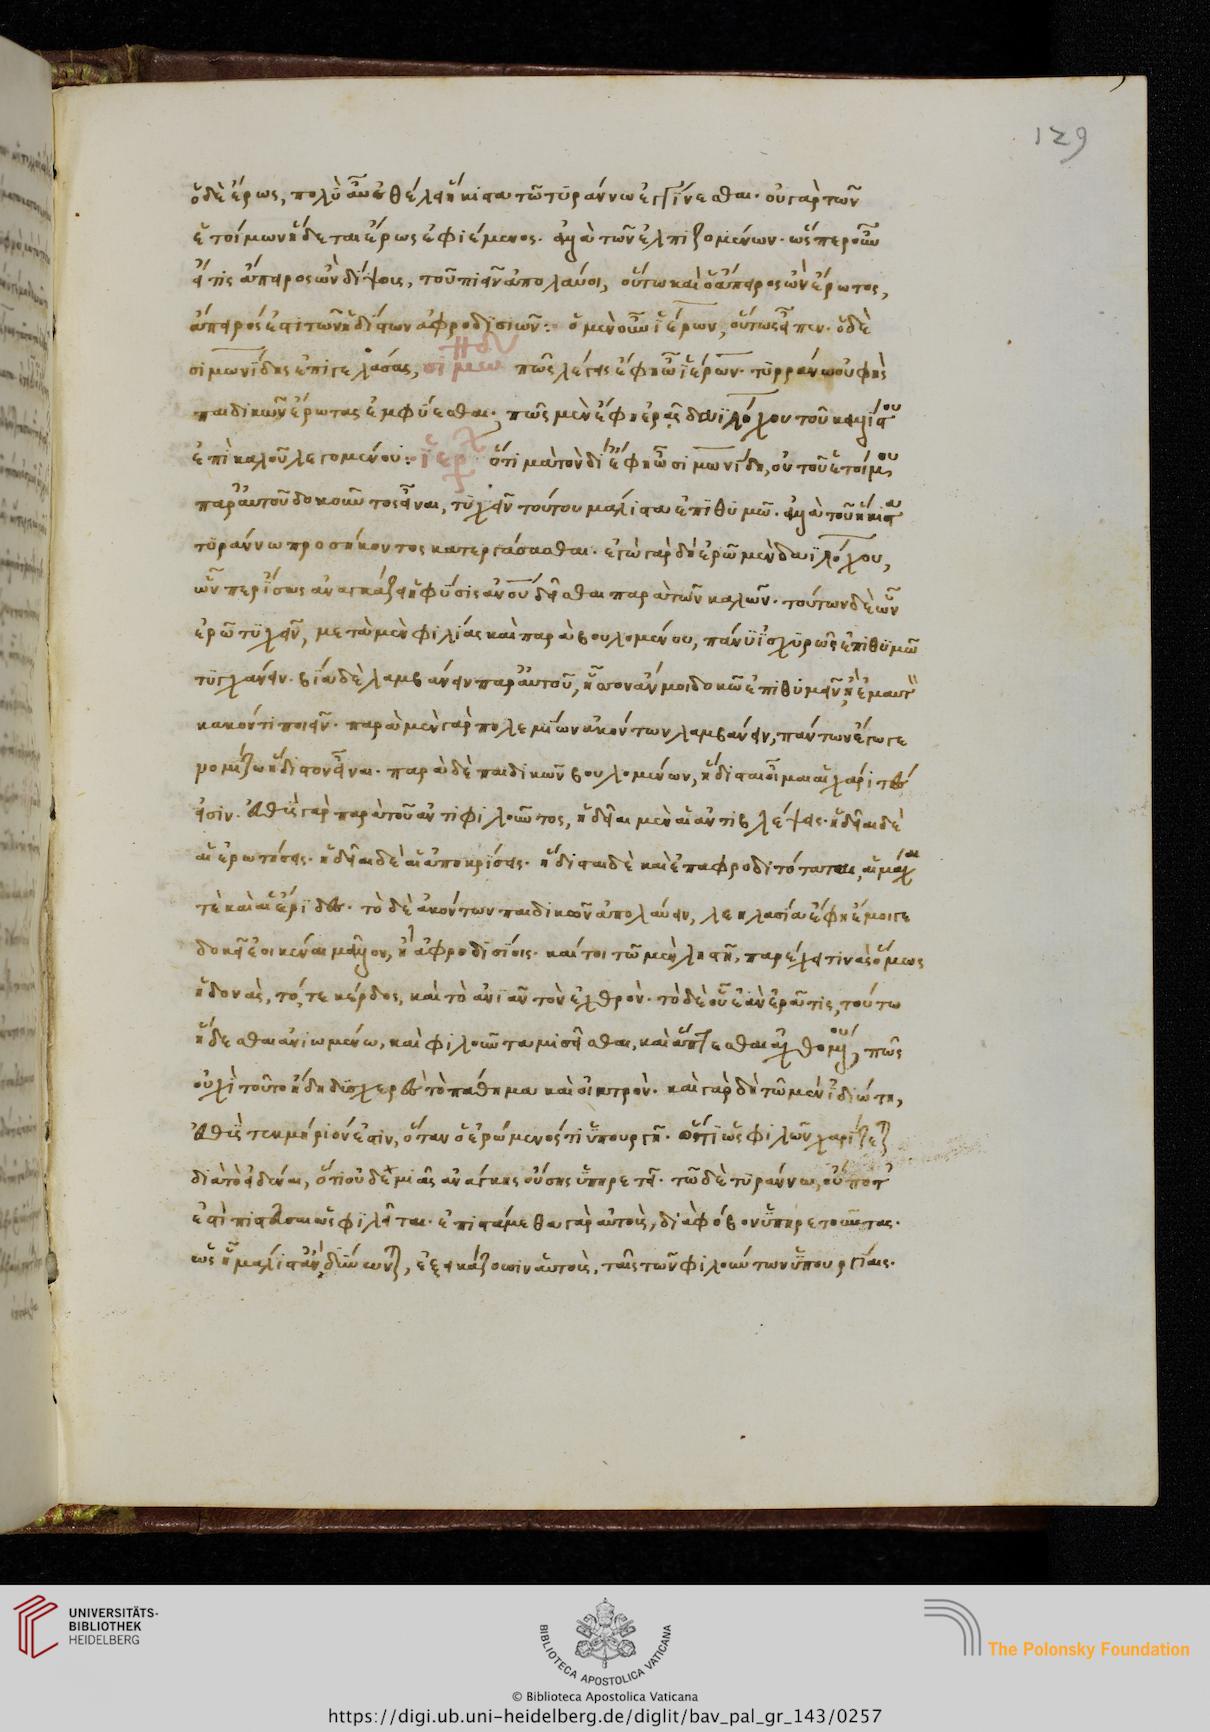 129
ὁ δὲ ἔρως, πολὺ αὖ ἐθέλει ἥκιστα τῷ τυράννω ἐγγίνεσθαι. οὐ γὰρ τῶν
ἑτοίμων ἥδεται ἔρως ἐφιέμενος. ἀλλὰ τῶν ἐλπιζομένων. ὥσπερ οὖν
εἴ τις ἄπειρος ὢν δίψους, τοῦ πιεῖν ἀπολαύοι, οὕτω καὶ ὁ ἄπειρος ὢν ἔρωτος,
ἄπειρός ἐστι τῶν ἡδίστων ἀφροδισίων: ὁ μὲν οὖν ἱέρων, οὕτως εἶπεν. ὁ δὲ
σιμωνίδης ἐπιγελάσας, πῶς λέγεις ἔφη ὦ ἱέρων. τυρράννω οὐ φὴς
παιδικῶν ἔρωτας ἐμφύεσθαι. πῶς μὲν ἔφη ἐρᾷς δαϊλόχου τοῦ καλλίστου
ἐπικαλουλεγομένου: ἱερ ὅτι μὰ τὸν δί ἔφη ὦ σιμωνίδη, οὐ τοῦ ἑτοίμου
παρ' αὐτοῦ δοκοῦντος εἶναι, τυχεῖν τούτου μάλιστα ἐπιθυμῶ. ἀλλὰ τοῦ ἥκιστα
τυράννω προσήκοντος κατεργάσασθαι. ἐγὼ γὰρ δὴ ἐρῶ μὲν δαϊλόχου,
ὧνπερ ἴσως ἀναγκάζει ἡ φύσις ἀνοῦ δεῖσθαι παρὰ τῶν καλῶν. τούτων δὲ ὧν
ἐρῶ τυχεῖν, μετὰ μὲν φιλίας καὶ παρὰ βουλομένου, πάνυ ἰσχυρῶς ἐπιθυμῶ
τυγχάνειν. βίᾳ δὲ λαμβάνειν παρ' αὐτοῦ, ἧττον ἄν μοι δοκῶ ἐπιθυμεῖν, ἢ ἐμαυτὸν
κακόν τι ποιεῖν. παρὰ μὲν γὰρ πολεμίων ἀκόντων λαμβάνειν, πάντων ἔγωγε
νομίζω ἥδιστον εἶναι. παρὰ δὲ παιδικῶν βουλομένων, ἥδισται οἶμαι αἱ χάριτές
εἰσιν. εὐθὺς γὰρ παρὰ τοῦ ἀντιφιλοῦντος, ἡδεῖαι μὲν αἱ ἀντιβλέψεις. ἡδεῖαι δὲ
αἱ ἐρωτήσεις. ἡδεῖαι δὲ αἱ ἀποκρίσεις. ἥδισται δὲ καὶ ἐπαφροδιτόταται, αἱ μάχαι
τὲ καὶ αἱ ἔριδες. τὸ δὲ ἀκόντων παιδικῶν ἀπολαύειν, λεηλασία ἔφη ἔμοιγε
δοκεῖ ἐοικέναι μᾶλλον, ἢ ἀφροδισίοις. καίτοι τῷ μὲν ληστῇ, παρέχει τινὰς ὅμως
ἡδονὰς, τό, τε κέρδος, καὶ τὸ ἀνιᾶν τὸν ἐχθρόν. τὸ δὲ οὗ ἐὰν ἐρᾷ τις, τούτω
ἥδεσθαι ἀνιωμένω, καὶ φιλοῦντα μισεῖσθαι, καὶ ἅπτεσθαι ἀχθομένου, πῶς
οὐχὶ τοῦτο ἤδη δυσχερὲς τὸ πάθημα καὶ οἰκτρόν. καὶ γὰρ δὴ τῷ μὲν ἰδιώτη,
εὐθὺς τεκμήριόν ἐστιν, ὅταν ὁ ἐρώμενός τι ὑπουργῇ. ὅτι ὡς φιλῶν χαρίζεται
διὰ τὸ εἰδέναι, ὅτι οὐδεμιᾶς ἀνάγκης οὔσης ὑπηρετεῖ. τῷ δὲ τυράννω, οὔποτ'
ἐστὶ πιστεῦσαι ὡς φιλεῖται. ἐπιστάμεθα γὰρ αὐτοὺς, διὰ φόβον ὑπηρετοῦντας.
ὡς ᾗ μάλιστ' ἂν δύνωνται, ἐξεικάζουσιν αὑτοὺς, ταῖς τῶν φιλούντων ὑπουργίαις.
UNIVERSITÄTS-
BIBLIOTHEK
HEIDELBERG
BIBLIOTECA APOSTOLICA VATICANA
The Polonsky Foundation
© Biblioteca Apostolica Vaticana
https://digi.ub.uni-heidelberg.de/diglit/bav_pal_gr_143/0257